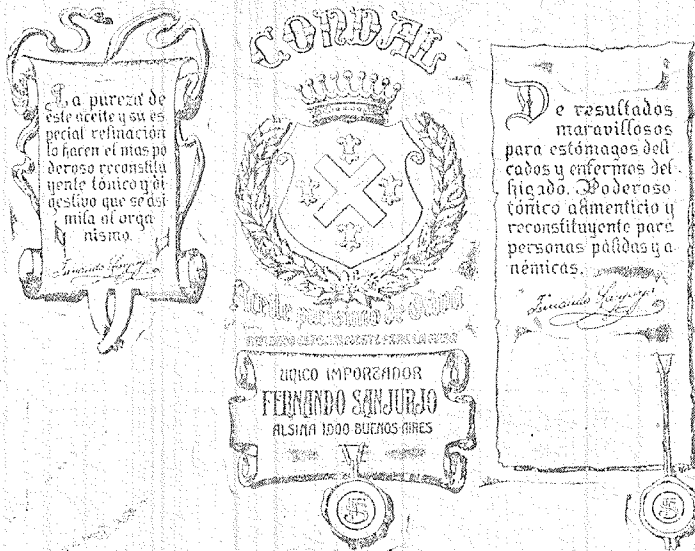 La pureza de
este aceite y su es
pecial refinación
lo hacen el mas po
deroso reconstitu
yente tónico y di
gestivo que se asi
mila al orga
nismo.
Fernando Sanjurjo
CONDAL
Aceite purisimo de Oliva
UNICO IMPORTADOR
FERNANDO SANJURJO
ALSINA 1000 BUENOS AIRES
FS
De resultados
maravillosos
para estómagos deli
cados y enfermos del
higado. Poderoso
tónico alimenticio y
reconstituyente para
personas pálidas y a
némicas.
Fernando Sanjurjo
FS